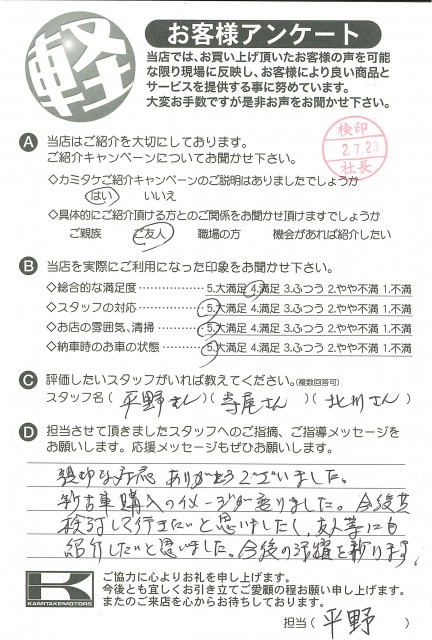 軽
お客様アンケート
当店では、お買い上げ頂いたお客様の声を可能
な限り現場に反映し、お客様により良い商品と
サービスを提供する事に努めています。
大変お手数ですが是非お声をお聞かせ下さい。
A 当店はご紹介を大切にしております。
ご紹介キャンペーンについてお聞かせ下さい。
検印
2.7.23
社長
◇カミタケご紹介キャンペーンのご説明はありましたでしょうか
はい いいえ
◇具体的にご紹介頂ける方とのご関係をお聞かせ頂けますでしょうか
ご親族 ご友人 職場の方 機会があれば紹介したい
B 当店を実際にご利用になった印象をお聞かせ下さい。
◇総合的な満足度 5.大満足 4.満足 3.ふつう 2.やや不満 1.不満
◇スタッフの対応 5.大満足 4.満足 3.ふつう 2.やや不満 1.不満
◇お店の雰囲気、清掃 5.大満足 4.満足 3.ふつう 2.やや不満 1.不満
◇納車時のお車の状態 5.大満足 4.満足 3.ふつう 2.やや不満 1.不満
C 評価したいスタッフがいれば教えてください。(複数回答可)
スタッフ名(平野さん)(寺尾さん)(北川さん)
D 担当させて頂きましたスタッフへのご指摘、ご指導メッセージを
お願いします。応援メッセージもぜひお願いします。
親切な対応 ありがとうございました。
中古車購入のイメージが変りました。今後共
検討して行きたいと思いましたし、友人等にも
紹介したいと思いました。今後の活躍を祈ります。
K
KAMITAKEMOTORS
ご協力に心よりお礼を申し上げます。
今後とも宜しくお引き立てご愛顧の程お願い申し上げます。
またのご来店を心からお待ちしております。
担当(平野)